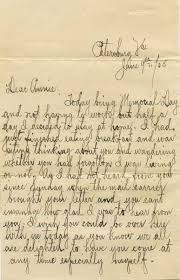 Petersburg Va
June 9th
Dear Annie.
Today being Memorial Day
and not having to work but half a
day I decided to stay at home. I had
just finished eating breakfast and was
sitting thinking about you and wondering
whether you had forgotten I was living
or not, as I had not heard from you
since Sunday when the mail carrier
brought your letter and you cant
imagine how glad I was to hear from
you. I wish you could be over here
with us today as you know you all
are delighted to have you come at
any time especially himself.